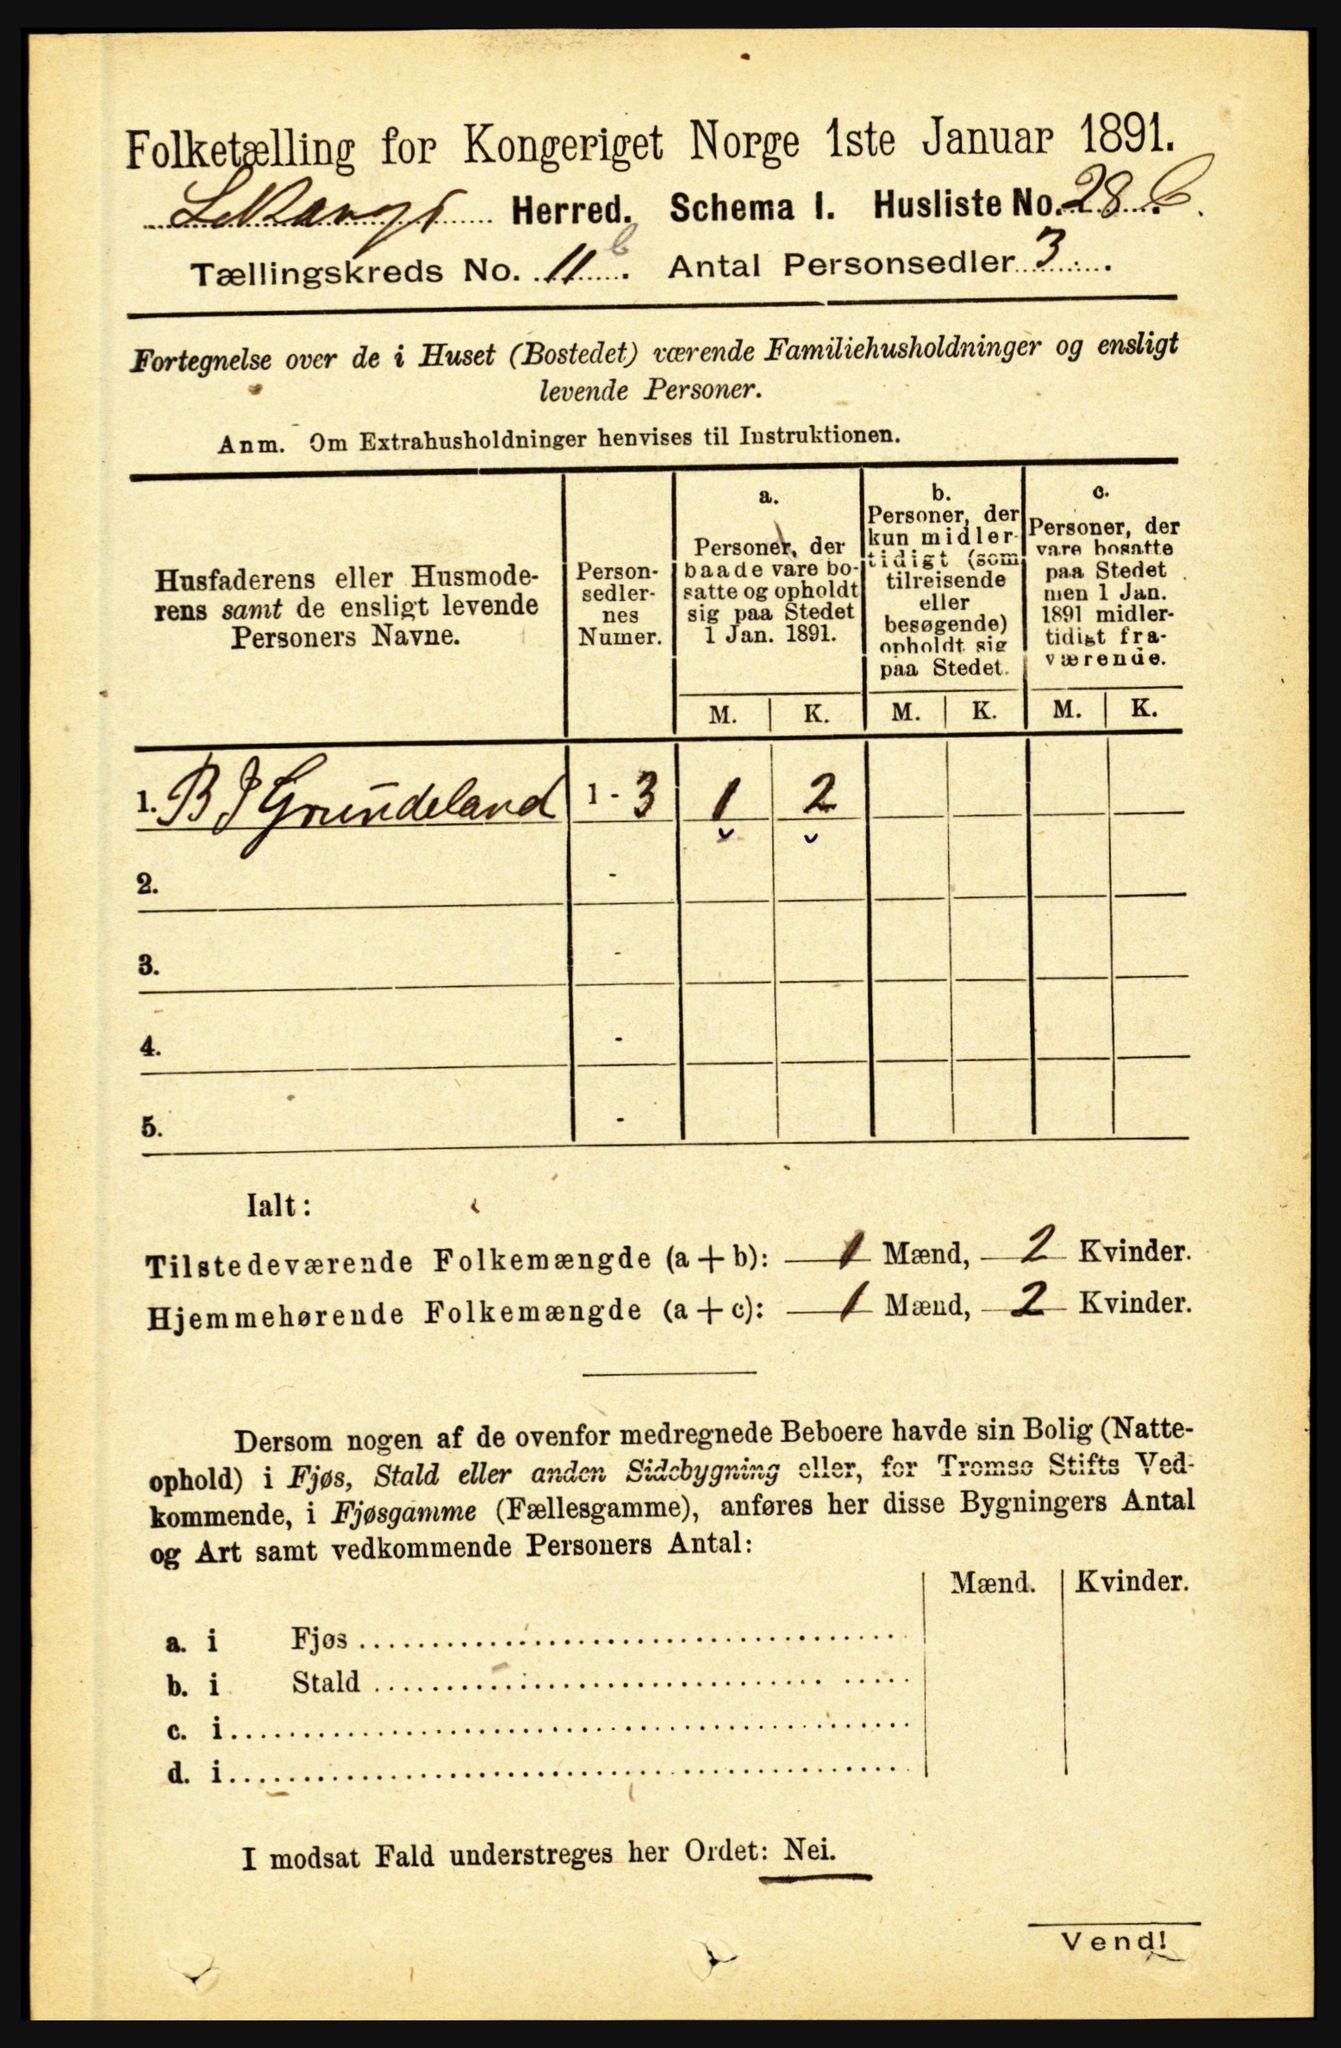 Folketælling for Kongeriget Norge 1ste Januar 1891.
Leikanger Herred. Schema I. Husliste No. 28 b.
Tællingskreds No. 11 b. Antal Personsedler 3.
Fortegnelse over de i Huset (Bostedet) værende Familiehusholdninger og ensligt
levende Personer.
Anm. Om Extrahusholdninger henvises til Instruktionen.
Husfaderens eller Husmode-
rens samt de ensligt levende
Personers Navne.
Person-
sedler-
nes
Numer.
a.
Personer, der
baade vare bo-
satte og opholdt
sig paa Stedet
1 Jan. 1891.
b.
Personer, der
kun midler-
tidigt (som
tilreisende
eller
besøgende)
opholdt sig
paa Stedet.
c.
Personer, der
vare bosatte
paa Stedet
men 1 Jan.
1891 midler-
tidigt fra-
værende.
M. K. M. K. M. K.
1. B J Grundeland 1 - 3 1 2
2. -
3. -
4. -
5. -
Ialt:
Tilstedeværende Folkemængde (a + b): 1 Mænd, 2 Kvinder.
Hjemmehørende Folkemængde (a + c): 1 Mænd, 2 Kvinder.
Dersom nogen af de ovenfor medregnede Beboere havde sin Bolig (Natte-
ophold) i Fjøs, Stald eller anden Sidebygning eller, for Tromsø Stifts Ved-
kommende, i Fjøsgamme (Fællesgamme), anføres her disse Bygningers Antal
og Art samt vedkommende Personers Antal:
Mænd. Kvinder.
a. i Fjøs
b. i Stald
c. i
d. i
I modsat Fald understreges her Ordet: Nei.
Vend!